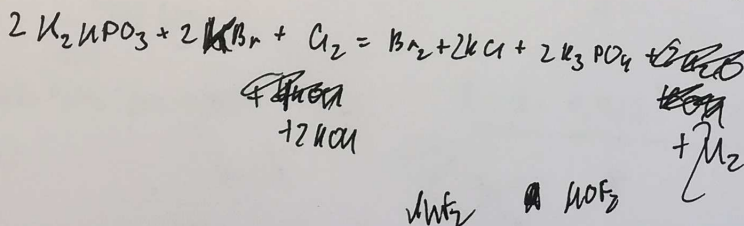 2 K₂HPO₃ + 2 KBr + Cl₂ = Br₂ + 2KCl + 2K₃PO₄
+ 2KOH
+ H₂
HOF₂